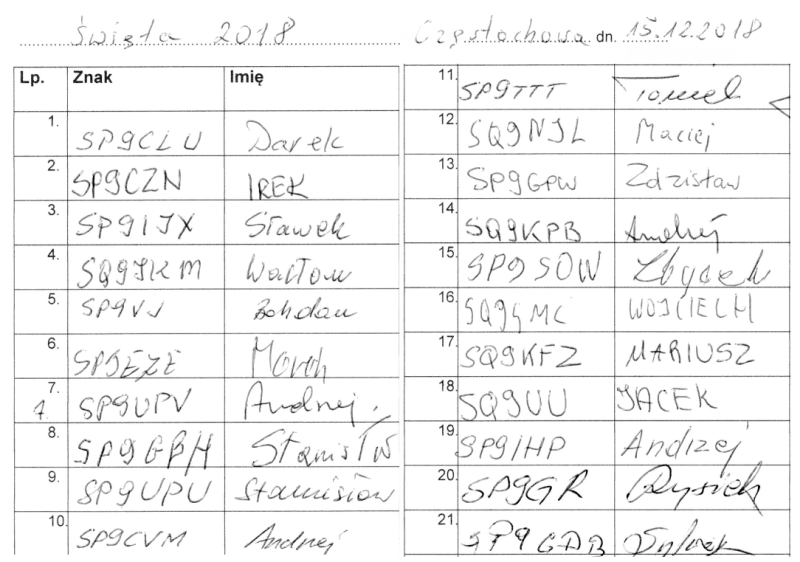 Święta 2018
Częstochowa dn. 15.12.2018
Lp. Znak Imię
1. SP9CLU Darek
2. SP9CZN IREK
3. SP9IJX Sławek
4. SQ9JKM Wacław
5. SP9VJ Bohdan
6. SP9EZE
7. SP9UPV Andrzej
8. SP9GBH Stanisław
9. SP9UPU Stanisław
10. SP9CVM Andrzej
11. SP9TTT Tomek
12. SQ9NJL Maciej
13. SP9GPW Zdzisław
14. SQ9KPB Andrzej
15. SP9SOW Zbyszek
16. WOJCIECH
17. SQ9KFZ MARIUSZ
18. SQ9UU JACEK
19. SP9IHP Andrzej
20. SP9GR Rysiek
21. SP9GDB